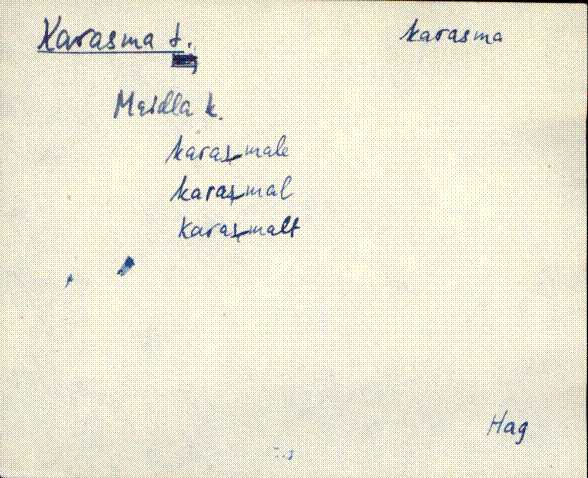 Karasma t.
karasma
Meidla k.
karasmale
karasmal
karasmalt
Hag